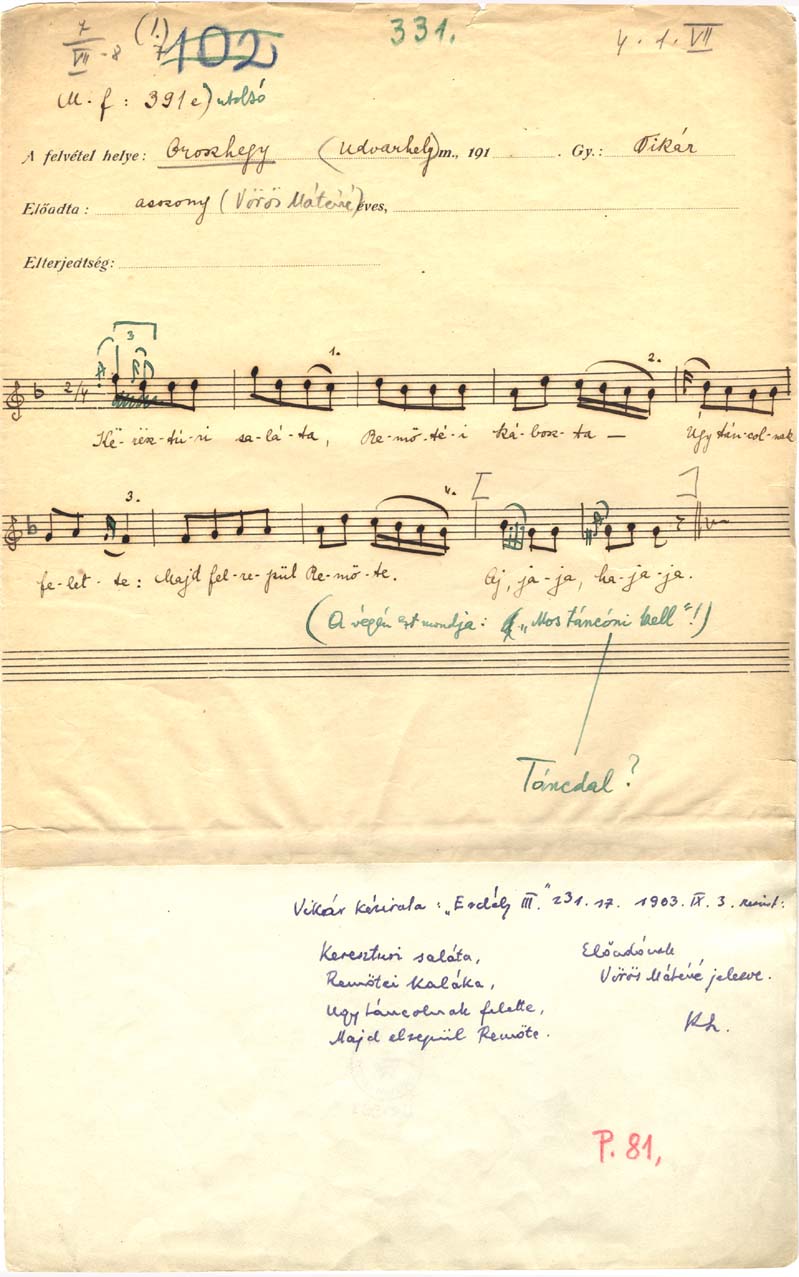 7/VII-8 (1.) 7 102 331. 4.1.VII
M.f: 391e) utolsó
A felvétel helye: Oroszhegy (Udvarhely)m., 191 . Gy.: Vikár
Előadta: asszony (Vörös Máténé) éves,
Elterjedtség:
3 1. 2.
2/4
Kë-rësz-tú-ri sa-lá-ta, Re-mö-té-i ká-bosz-ta — Úgy tán-col-nak
3. 4.
fe-let-te: Majd fel-re-pül Re-mö-te. Aj, ja-ja, ha-ja-ja.
(A végén ezt mondja: „Mos táncóni kell"!)
Táncdal?
Vikár kézirata: „Erdély III." 231. 17. 1903. IX. 3. szerint:
Kereszturi saláta, Előadónak
Remötei kaláka, Vörös Máténé jelezve.
Ugy táncolnak felette,
Majd elrepül Remöte. Kh.
P. 81,